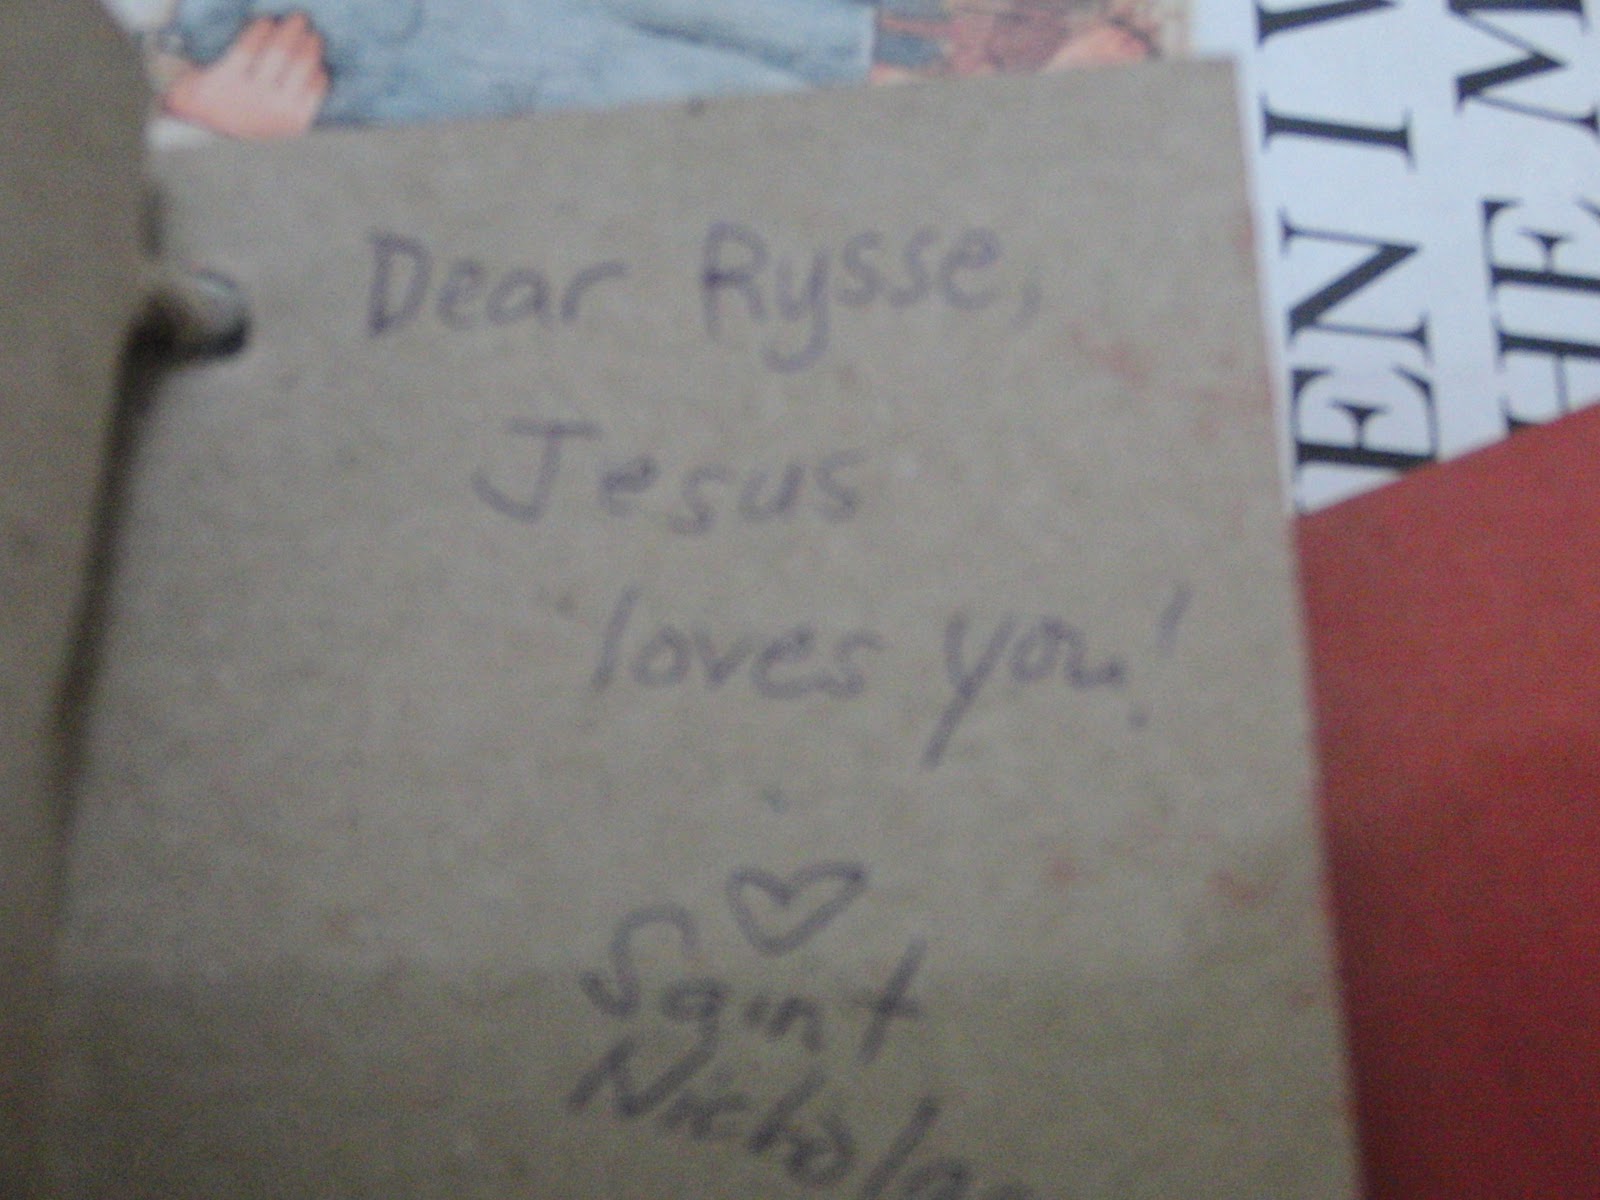 Dear Rysse,
Jesus
loves you!
♡
Saint
Nicholas
EN I
HE M